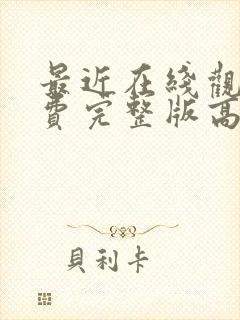 最近在綫觀
費完整版高
貝利卡